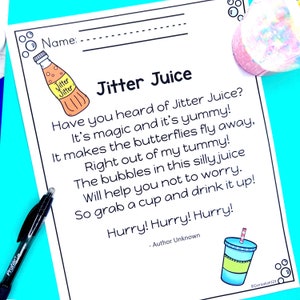 Name:
Jitter Juice
Jitter
Jitter
Have you heard of Jitter Juice?
It's magic and it's yummy!
It makes the butterflies fly away,
Right out of my tummy!
The bubbles in this silly juice
Will help you not to worry.
So grab a cup and drink it up!
Hurry! Hurry! Hurry!
- Author Unknown